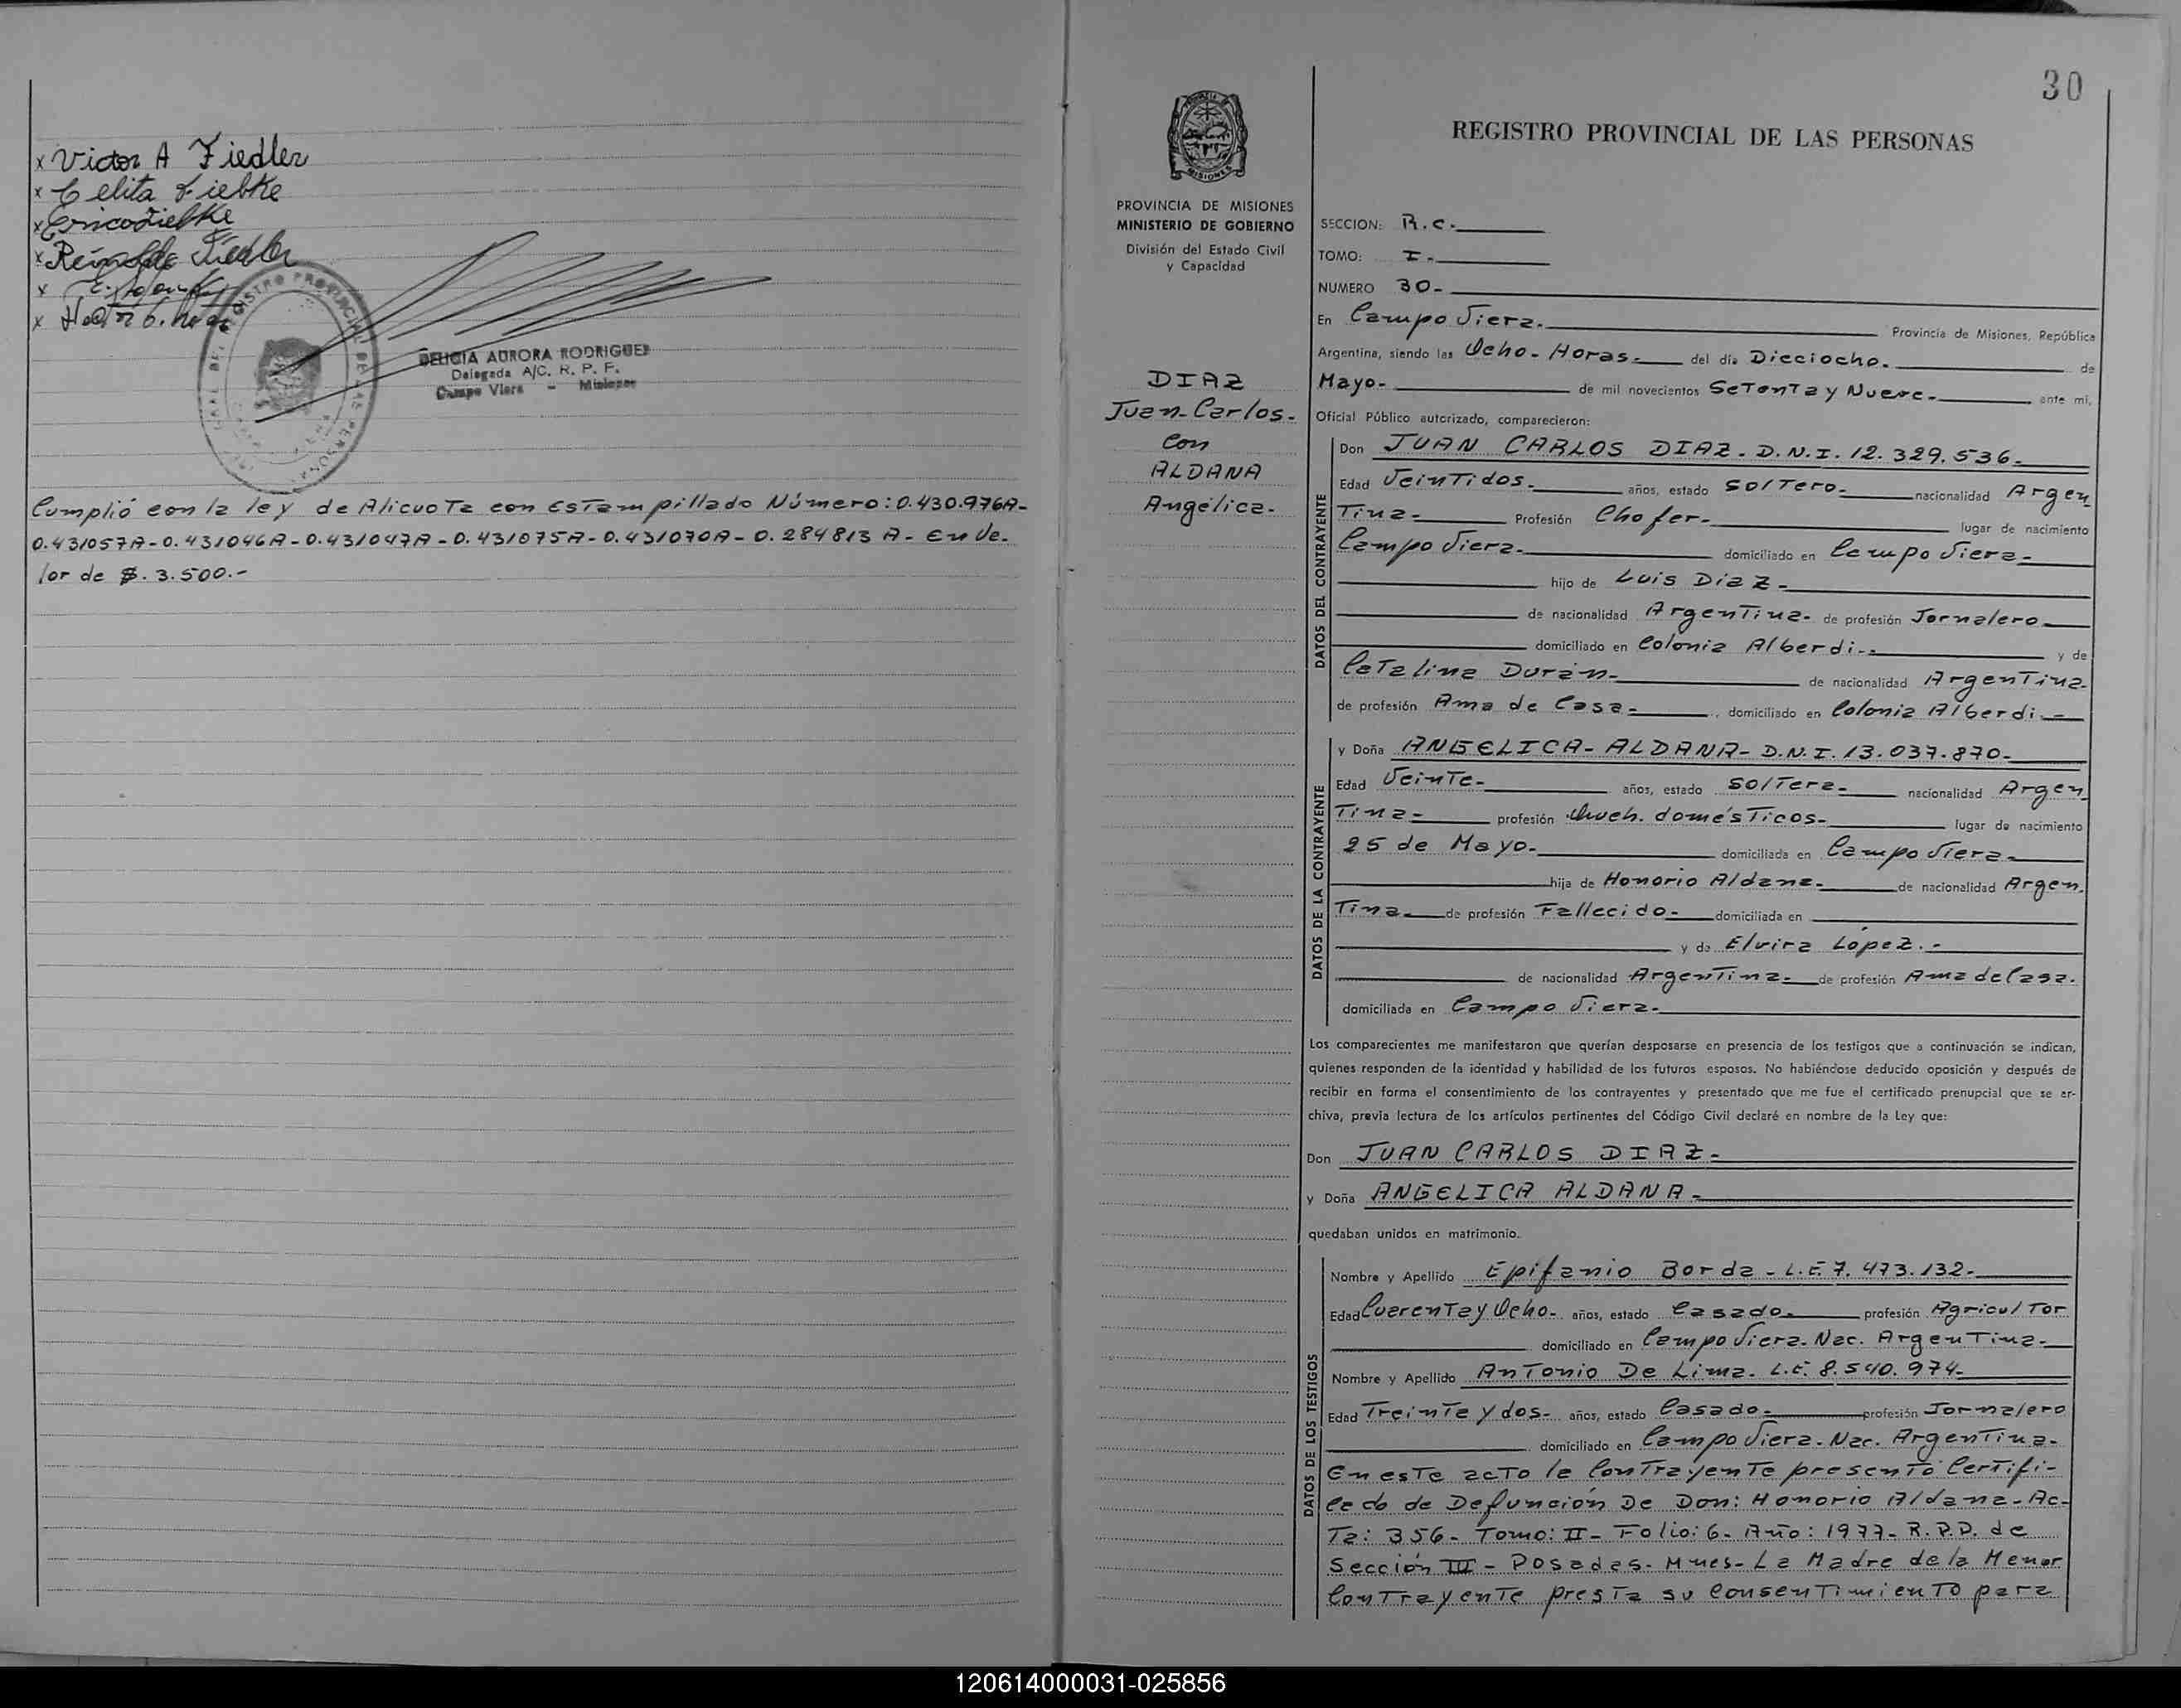 x Victor A Fiedler
x Celita Liebke
x Erico Liebke
x Reinaldo Fiedler
x
x
DELICIA AURORA RODRIGUEZ
Delegada A/C. R. P. P.
Campo Viera - Misiones
Cumplió con la ley de Alicuota con Estampillado Número: 0.430.976A-
0.431057A-0.431046A-0.431047A-0.431075A-0.431070A-0.284813 A- En Va-
lor de $. 3.500.-
30
REGISTRO PROVINCIAL DE LAS PERSONAS
PROVINCIA DE MISIONES
MINISTERIO DE GOBIERNO
División del Estado Civil
y Capacidad
DIAZ
Juan-Carlos-
con
ALDANA
Angélica-
SECCION: R.C.
TOMO: I-
NUMERO 30-
En Campo Viera- Provincia de Misiones, República
Argentina, siendo las Ocho-Horas- del día Dieciocho- de
Mayo- de mil novecientos Setenta y Nueve- ante mi,
Oficial Público autorizado, comparecieron:
DATOS DEL CONTRAYENTE
Don JUAN CARLOS DIAZ- D.N.I. 12.329.536-
Edad Veintidos- años, estado Soltero- nacionalidad Argen
tina- Profesión Chofer- lugar de nacimiento
Campo Viera- domiciliado en Campo Viera-
hijo de Luis Diaz-
de nacionalidad Argentina- de profesión Jornalero
domiciliado en Colonia Alberdi- y de
Catalina Durán- de nacionalidad Argentina-
de profesión Ama de Casa- , domiciliado en Colonia Alberdi-
DATOS DE LA CONTRAYENTE
y Doña ANGELICA-ALDANA- D.N.I. 13.037.870-
Edad Veinte- años, estado Soltera- nacionalidad Argen
tina- profesión Queh. domésticos- lugar de nacimiento
25 de Mayo- domiciliada en Campo Viera-
hija de Honorio Aldana- de nacionalidad Argen
tina- de profesión Fallecido- domiciliada en
y de Elvira López.-
de nacionalidad Argentina- de profesión Ama de Casa.
domiciliada en Campo Viera-
Los comparecientes me manifestaron que querían desposarse en presencia de los testigos que a continuación se indican,
quienes responden de la identidad y habilidad de los futuros esposos. No habiéndose deducido oposición y después de
recibir en forma el consentimiento de los contrayentes y presentado que me fue el certificado prenupcial que se ar-
chiva, previa lectura de los artículos pertinentes del Código Civil declaré en nombre de la Ley que:
Don JUAN CARLOS DIAZ-
y Doña ANGELICA ALDANA-
quedaban unidos en matrimonio.
DATOS DE LOS TESTIGOS
Nombre y Apellido Epifanio Borda- L.E. 7.473.132-
Edad Cuarenta y Ocho- años, estado Casado- profesión Agricultor
domiciliado en Campo Viera- Nac. Argentina-
Nombre y Apellido Antonio De Lima- L.E. 8.540.974-
Edad Treinta y dos- años, estado Casado- profesión Jornalero
domiciliado en Campo Viera- Nac. Argentina-
En este acto la Contrayente presentó Certifi-
cado de Defunción De Don: Honorio Aldana- Ac-
ta: 356- Tomo: II- Folio: 6- Año: 1977- R.P.P. de
Sección III- Posadas- Mnes- La Madre de la Menor
Contrayente presta su consentimiento para
120614000031-025856